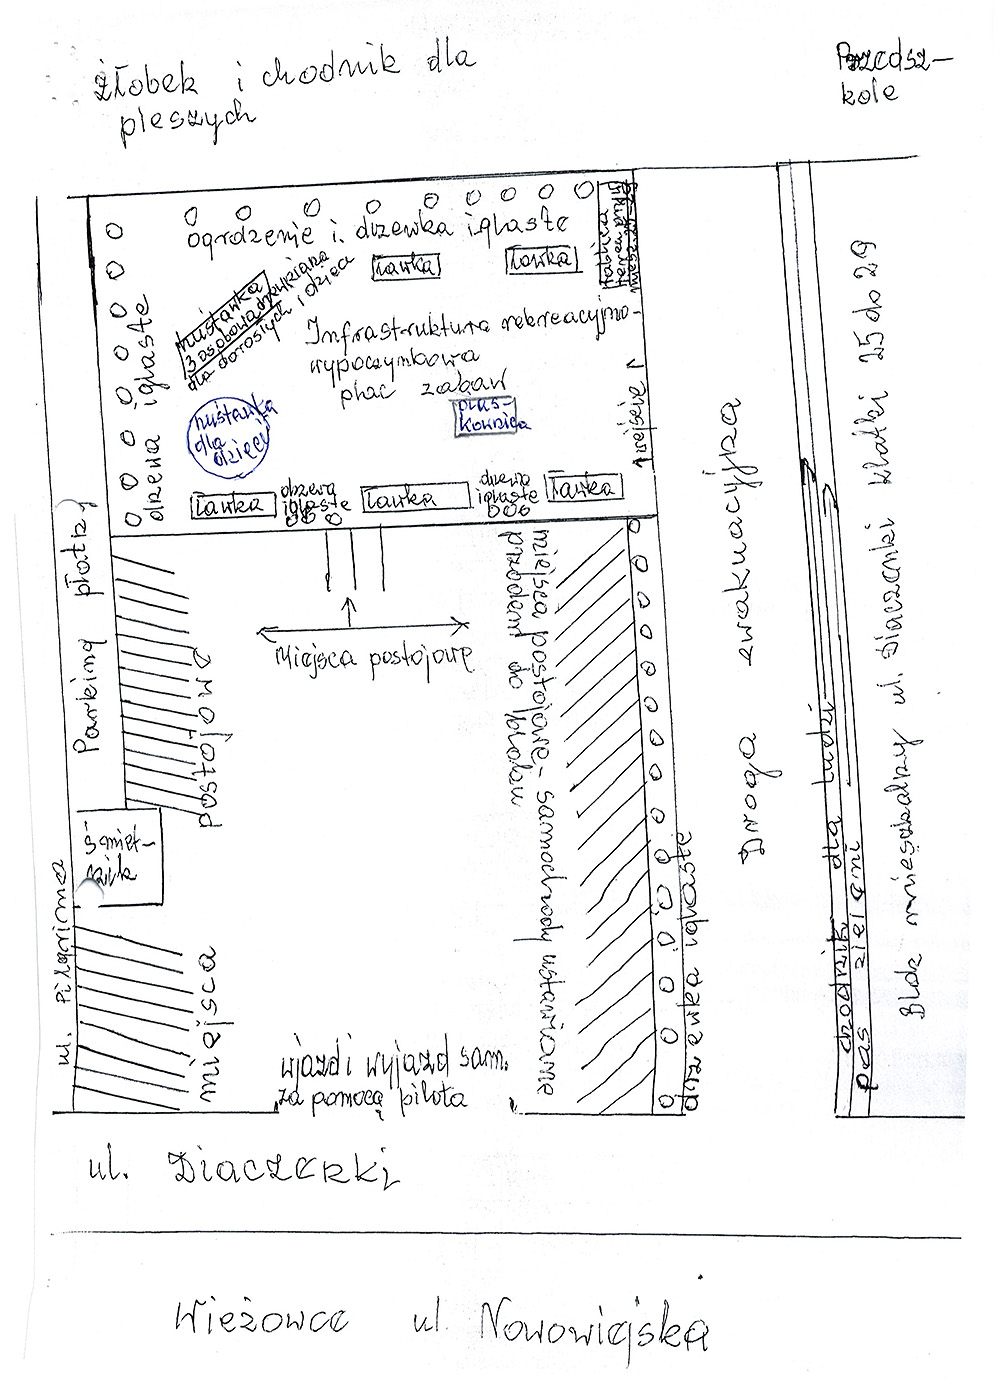 Żłobek i chodnik dla
pieszych
Przedsz-
kole
ogrdzenie i drzewka iglaste
huśtawka
3 osobowa drewniana
dla dorosłych i dzieci
Ławka
Ławka
tablica
miesz. 25-29
Infrastruktura rekreacyjno-
wypoczynkowa
plac zabaw
huśtawka
dla
dzieci
pias-
kownica
wejście
drzewa iglaste
Ławka
drzewa
iglaste
Ławka
drzewa
iglaste
Ławka
Parking płatny
Miejsca postojowe
miejsca postojowe
miejsca postojowe - samochody ustawione
przodem do bloku
śmiet-
nik
ul. Pilgrima
drzewka iglaste
Droga ewakuacyjna
chodnik dla ludzi
pas zieleni
Blok mieszkalny ul. Diaczenki klatki 25 do 29
wjazd i wyjazd sam.
za pomocą pilota
ul. Diaczenki
Wieżowce ul. Nowowiejska